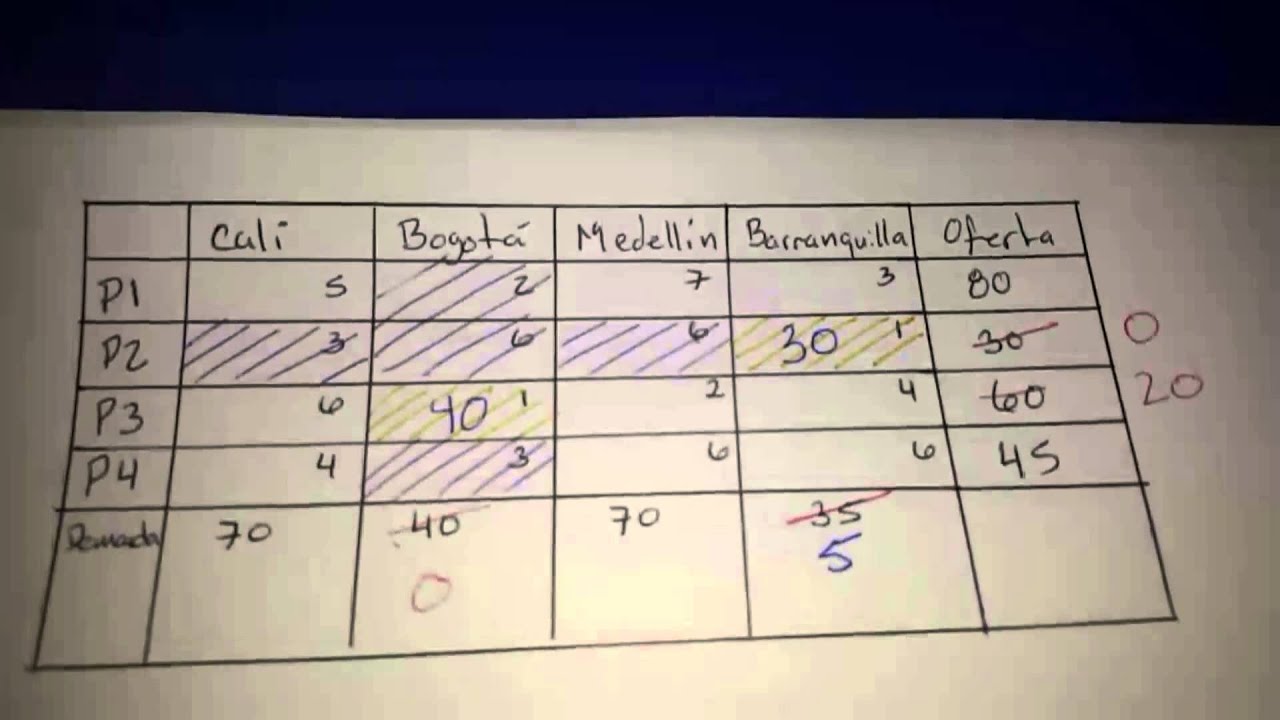 Cali Bogotá Medellín Barranquilla Oferta
P1 5 2 7 3 80
P2 3 6 6 30 1 30 0
P3 6 40 1 2 4 60 20
P4 4 3 6 6 45
Demada 70 40 70 35
0 5